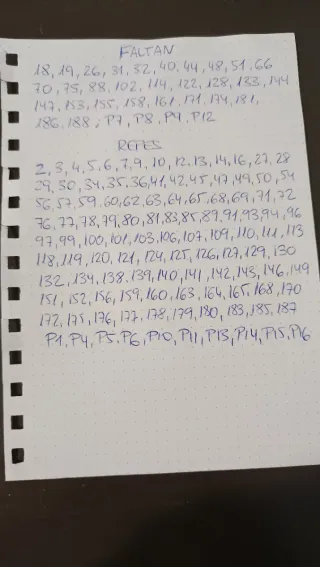 FALTAN
18, 19, 26, 31, 32, 40, 44, 48, 51, 66
70, 75, 88, 102, 114, 122, 128, 133, 144
147, 153, 155, 158, 161, 171, 174, 181,
186, 188; P7, P8, P9, P12
REPES
2, 3, 4, 5, 6, 7, 9, 10, 12, 13, 14, 16, 27, 28
29, 30, 34, 35, 36, 41, 42, 45, 47, 49, 50, 54
56, 57, 59, 60, 62, 63, 64, 65, 68, 69, 71, 72
76, 77, 78, 79, 80, 81, 83, 85, 89, 91, 93, 94, 96
97, 99, 100, 101, 103, 106, 107, 109, 110, 111, 113
118, 119, 120, 121, 124, 125, 126, 127, 129, 130
132, 134, 138, 139, 140, 141, 142, 143, 146, 149
151, 152, 156, 159, 160, 163, 164, 165, 168, 170
172, 175, 176, 177, 178, 179, 180, 183, 185, 187
P1, P4, P5, P6, P10, P11, P13, P14, P15, P16